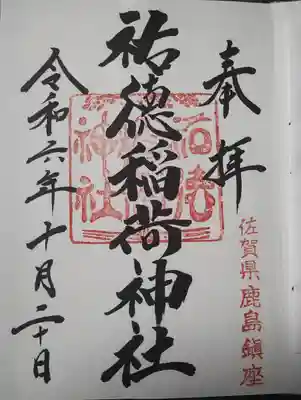 奉拝
佐賀県鹿島鎮座
祐徳稲荷神社
祐徳
神社
令和六年十月二十日